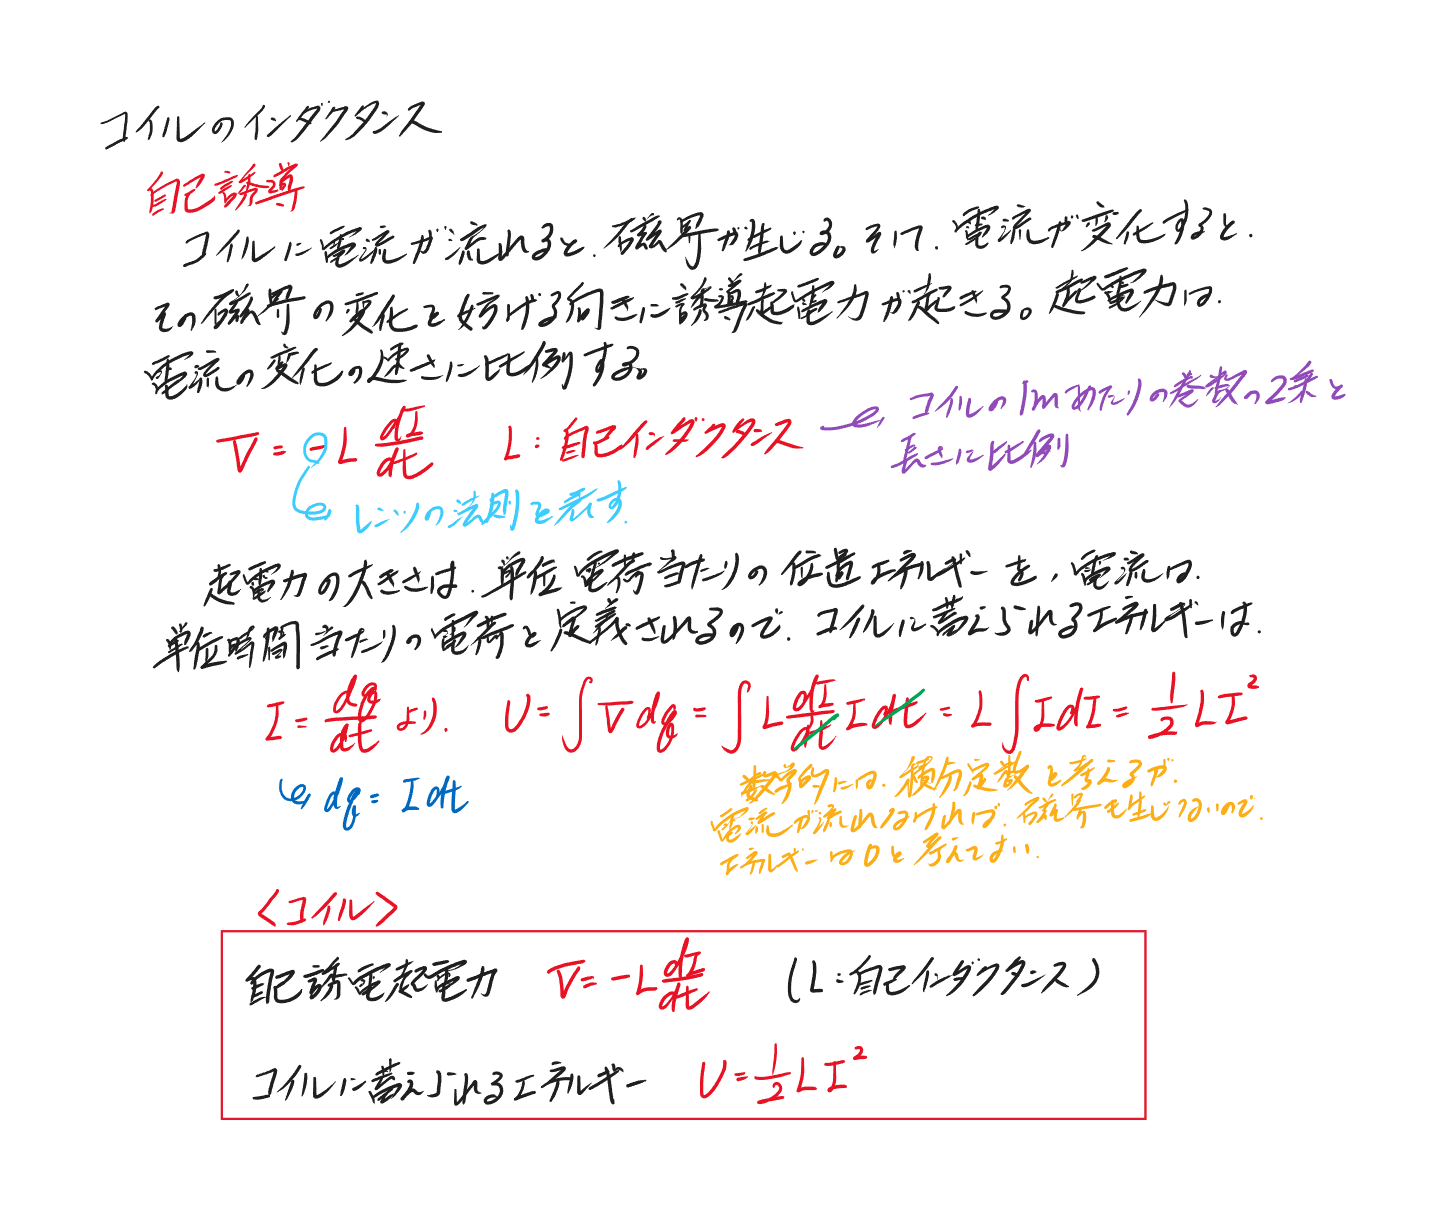 コイルのインダクタンス
自己誘導
コイルに電流が流れると、磁界が生じる。そして、電流が変化すると、
その磁界の変化を妨げる向きに誘導起電力が起きる。起電力は、
電流の変化の速さに比例する。
V = -L dI/dt L：自己インダクタンス
コイルの1mあたりの巻数の2乗と
長さに比例
レンツの法則を表す。
起電力の大きさは、単位電荷当たりの位置エネルギーを、電流は、
単位時間当たりの電荷と定義されるので、コイルに蓄えられるエネルギーは、
I = dq/dt より、 U = ∫V dq = ∫L dI/dt I dt = L∫I dI = 1/2 LI²
dq = I dt
数学的には、積分定数を考えるが、
電流が流れなければ、磁界も生じないので、
エネルギーは0と考えてよい。
〈コイル〉
自己誘電起電力 V = -L dI/dt （L：自己インダクタンス）
コイルに蓄えられるエネルギー U = 1/2 LI²